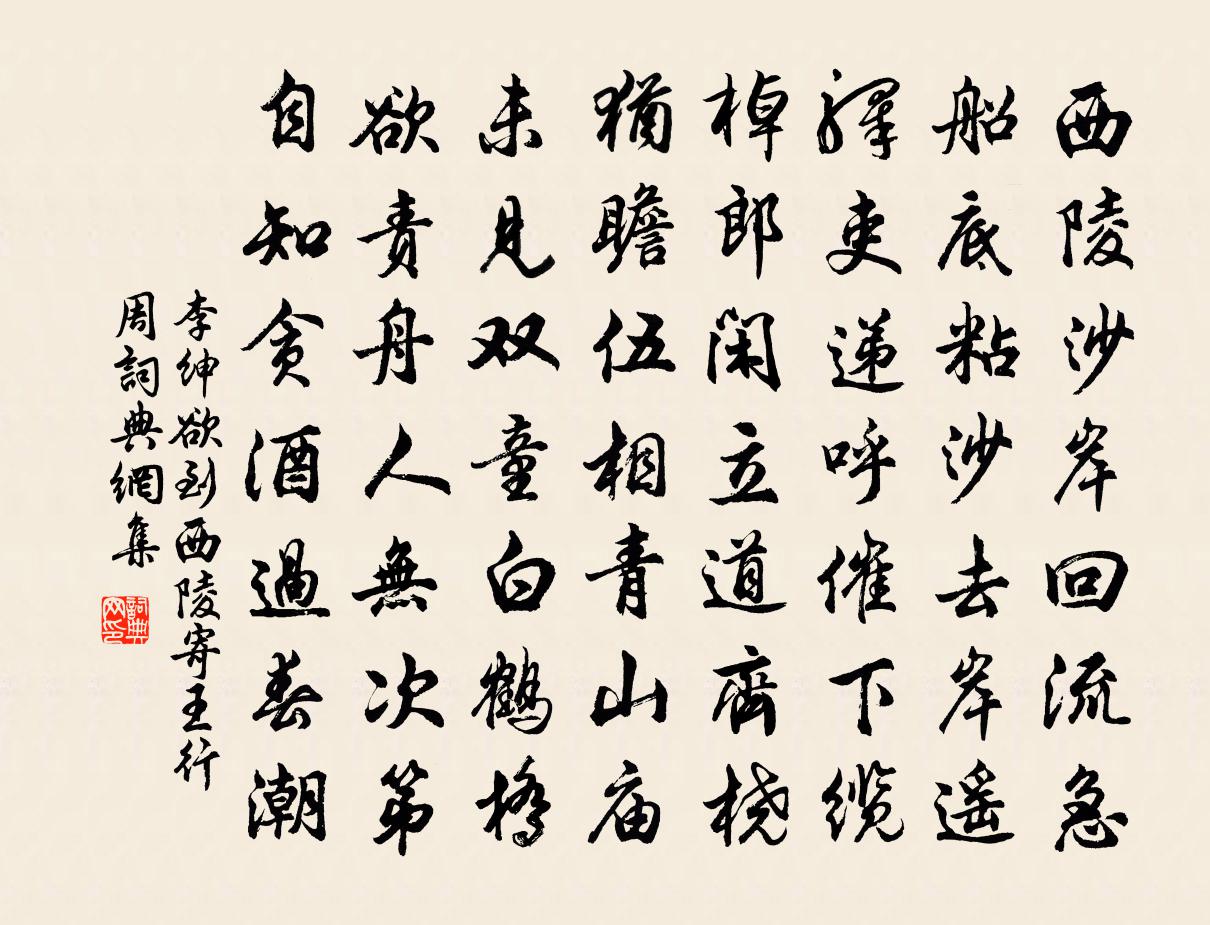 西陵沙岸回流急
船底粘沙去岸遥
驛吏递呼催下缆
棹郎闲立道齊桡
猶瞻伍相青山庙
未見双童白鶴橋
欲责舟人無次第
自知贪酒過春潮
李绅欲到西陵寄王行
周詞典網集
詞典网印